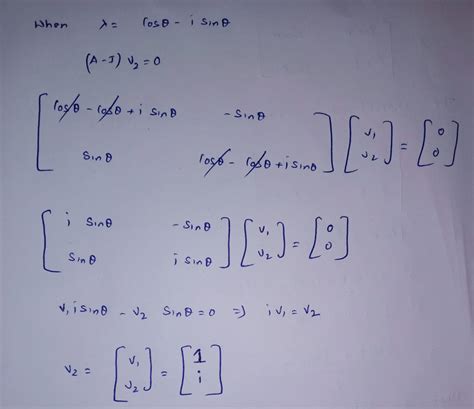 When λ = cosθ - i sinθ
(A-J) v₂ = 0
[ cosθ - cosθ + i sinθ   - sinθ ] [ v₁ ] = [ 0 ]
[ sinθ   cosθ - cosθ + i sinθ ] [ v₂ ] = [ 0 ]
[ i sinθ   - sinθ ] [ v₁ ] = [ 0 ]
[ sinθ   i sinθ ] [ v₂ ] = [ 0 ]
v₁ i sinθ - v₂ sinθ = 0 ⇒ i v₁ = v₂
v₂ = [ v₁ ] = [ 1 ]
[ v₂ ] = [ i ]